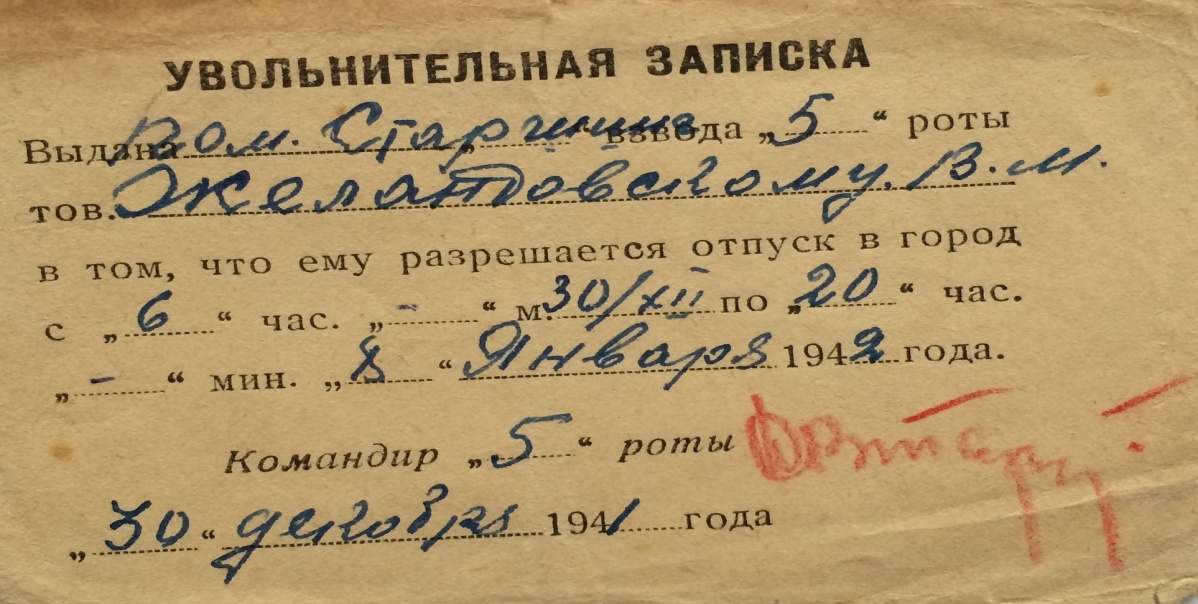 УВОЛЬНИТЕЛЬНАЯ ЗАПИСКА
Выдана пом. Старшины взвода „5“ роты
тов. Желатовскому. В. М.
в том, что ему разрешается отпуск в город
с „6“ час. „-“ м. 30/XII по „20“ час.
„-“ мин. „“ Января 1942 года.
Командир „5“ роты
„30“ декабря 1941 года